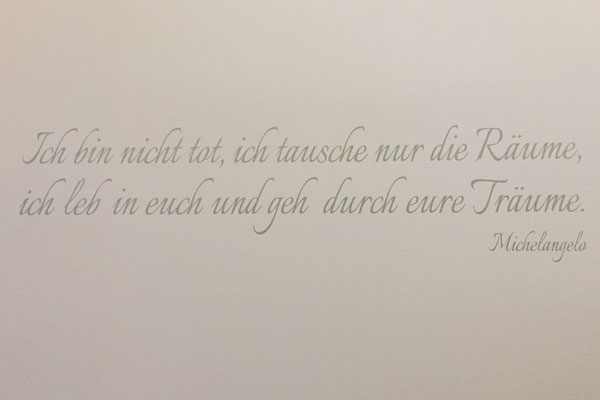 Ich bin nicht tot, ich tausche nur die Räume,
ich leb in euch und geh durch eure Träume.
Michelangelo